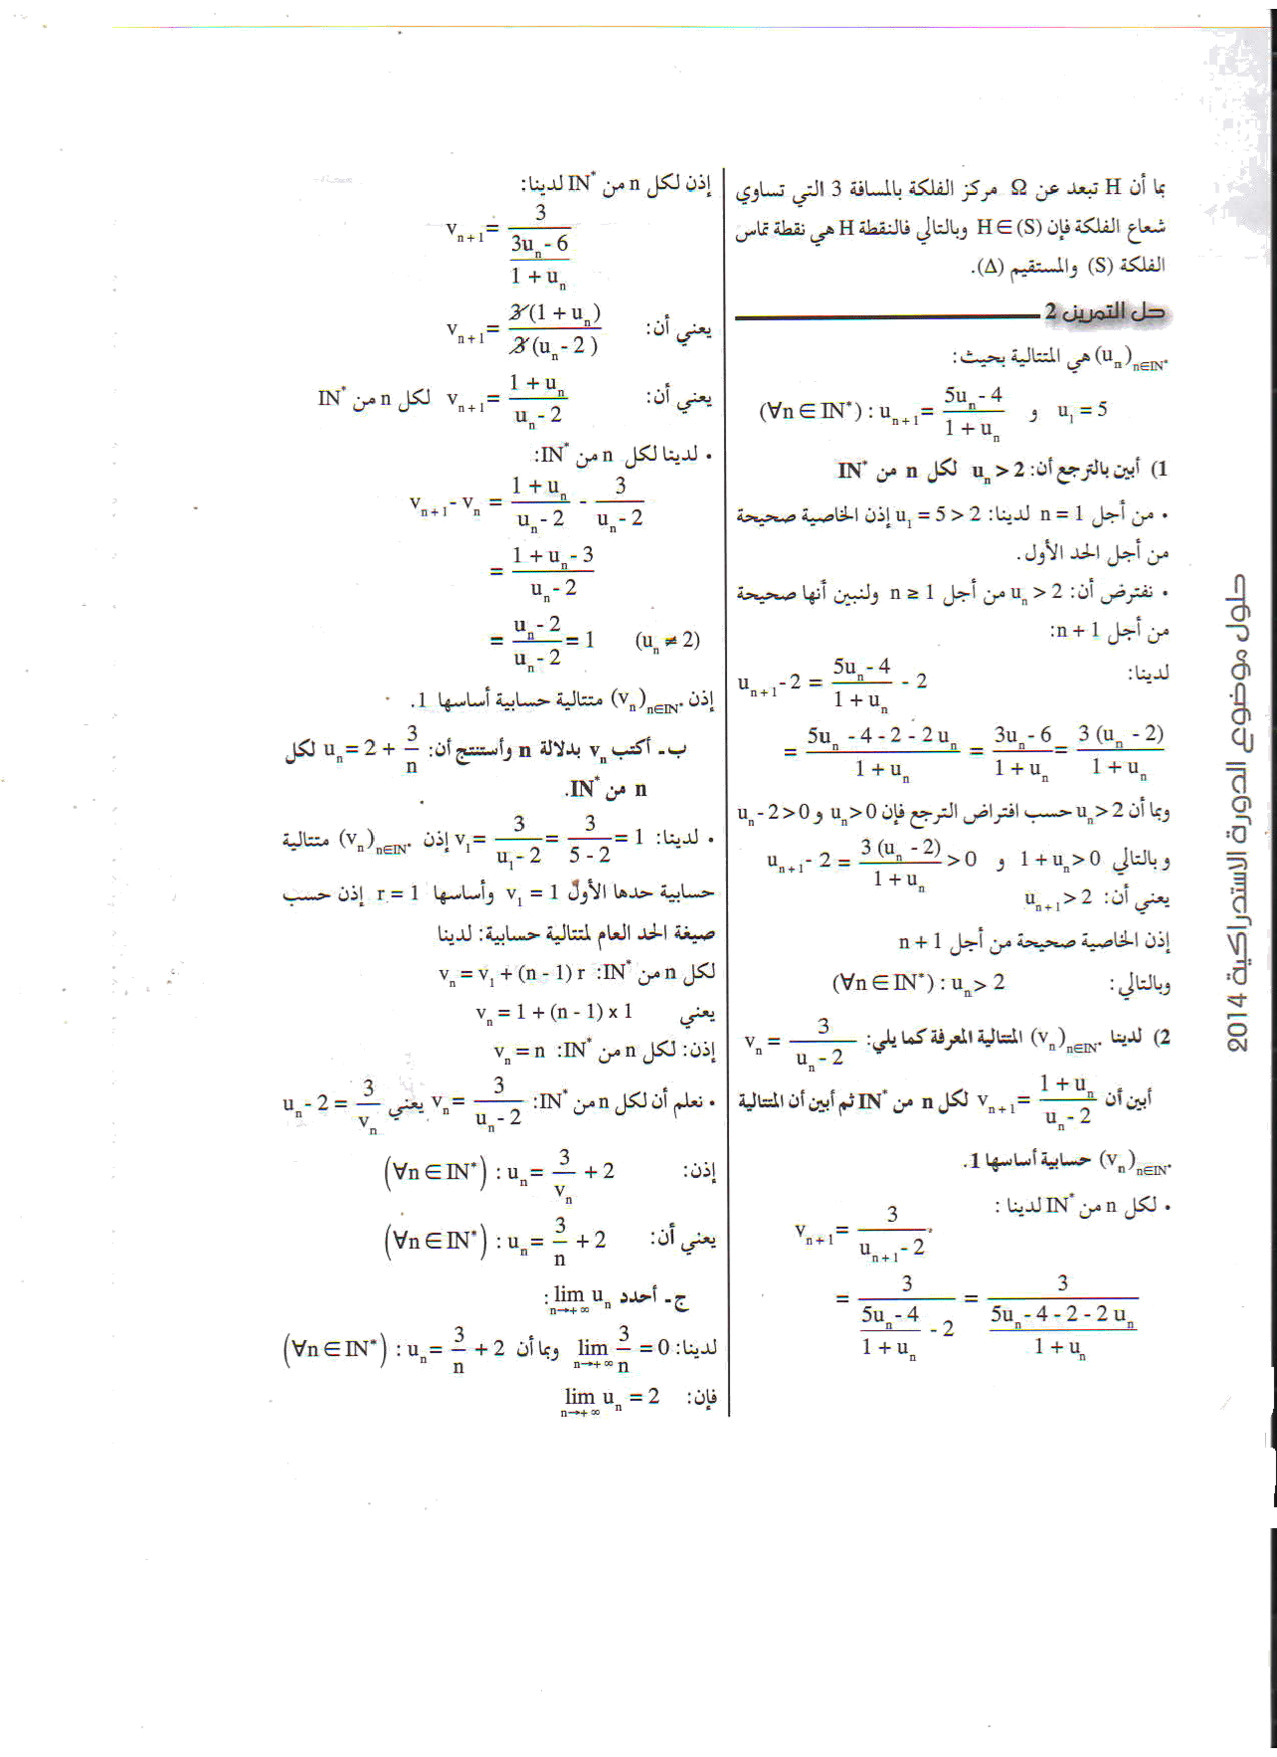 بما أن H تبعد عن Ω مركز الفلكة بالمسافة 3 التي تساوي
شعاع الفلكة فإن H∈(S) وبالتالي فالنقطة H هي نقطة تماس
الفلكة (S) والمستقيم (Δ).
حل التمرين 2
(u_n)_{n∈IN*} هي المتتالية بحيث:
u_1 = 5 و (∀n∈IN*) : u_{n+1} = (5u_n - 4)/(1 + u_n)
1) أبين بالترجع أن: u_n > 2 لكل n من IN*
• من أجل n = 1 لدينا: u_1 = 5 > 2 إذن الخاصية صحيحة
من أجل الحد الأول.
• نفترض أن: u_n > 2 من أجل n ≥ 1 ولنبين أنها صحيحة
من أجل n + 1:
لدينا: u_{n+1} - 2 = (5u_n - 4)/(1 + u_n) - 2
= (5u_n - 4 - 2 - 2u_n)/(1 + u_n) = (3u_n - 6)/(1 + u_n) = 3(u_n - 2)/(1 + u_n)
وبما أن u_n > 2 حسب افتراض الترجع فإن u_n > 0 و u_n - 2 > 0
وبالتالي 1 + u_n > 0 و u_{n+1} - 2 = 3(u_n - 2)/(1 + u_n) > 0
يعني أن: u_{n+1} > 2
إذن الخاصية صحيحة من أجل n + 1
وبالتالي: (∀n∈IN*) : u_n > 2
2) لدينا (v_n)_{n∈IN*} المتتالية المعرفة كما يلي: v_n = 3/(u_n - 2)
أبين أن v_{n+1} = (1 + u_n)/(u_n - 2) لكل n من IN* ثم أبين أن المتتالية
(v_n)_{n∈IN*} حسابية أساسها 1.
• لكل n من IN* لدينا : v_{n+1} = 3/(u_{n+1} - 2)
= 3/((5u_n - 4)/(1 + u_n) - 2) = 3/((5u_n - 4 - 2 - 2u_n)/(1 + u_n))
إذن لكل n من IN* لدينا:
v_{n+1} = 3/((3u_n - 6)/(1 + u_n))
يعني أن: v_{n+1} = 3(1 + u_n)/(3(u_n - 2))
يعني أن: v_{n+1} = (1 + u_n)/(u_n - 2) لكل n من IN*
• لدينا لكل n من IN*:
v_{n+1} - v_n = (1 + u_n)/(u_n - 2) - 3/(u_n - 2)
= (1 + u_n - 3)/(u_n - 2)
= (u_n - 2)/(u_n - 2) = 1 (u_n ≠ 2)
إذن (v_n)_{n∈IN*} متتالية حسابية أساسها 1.
ب- أكتب v_n بدلالة n وأستنتج أن: u_n = 2 + 3/n لكل
n من IN*.
• لدينا: v_1 = 3/(u_1 - 2) = 3/(5 - 2) = 1 إذن (v_n)_{n∈IN*} متتالية
حسابية حدها الأول v_1 = 1 وأساسها r = 1 إذن حسب
صيغة الحد العام لمتتالية حسابية: لدينا
لكل n من IN*: v_n = v_1 + (n - 1) r
يعني v_n = 1 + (n - 1) x 1
إذن: لكل n من IN*: v_n = n
• نعلم أن لكل n من IN*: v_n = 3/(u_n - 2) يعني u_n - 2 = 3/v_n
إذن: (∀n∈IN*) : u_n = 3/v_n + 2
يعني أن: (∀n∈IN*) : u_n = 3/n + 2
ج- أحدد lim_{n→+∞} u_n :
لدينا: lim_{n→+∞} 3/n = 0 وبما أن (∀n∈IN*) : u_n = 3/n + 2
فإن: lim_{n→+∞} u_n = 2
حلول موضوع الدورة الاستدراكية 2014